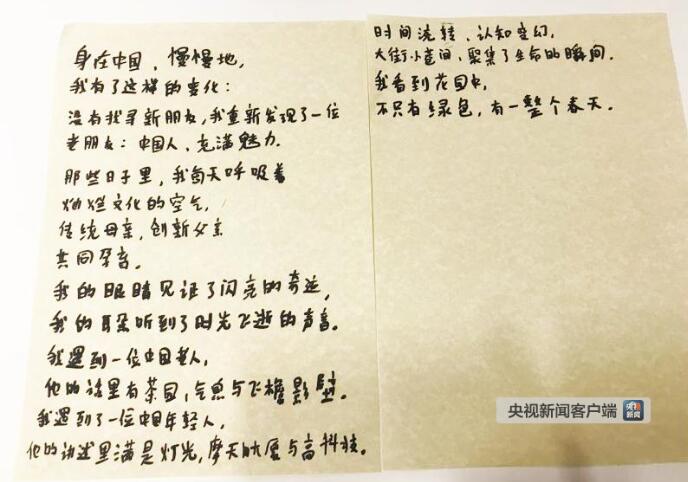 身在中国，慢慢地，
我有了这样的变化：
没有找寻新朋友，我重新发现了一位
老朋友：中国人，充满魅力.
那些日子里，我每天呼吸着
灿烂文化的空气.
传统母亲，创新父亲
共同孕育。
我的眼睛见证了闪亮的奇迹，
我的耳朵听到了时光飞逝的声音。
我遇到一位中国老人，
他的话里有茶园，气息与飞檐影壁。
我遇到了一位中国年轻人，
他的讲述里满是灯光，摩天大厦与高科技。
时间流转、认知变幻，
大街小巷间，聚集了生命的瞬间.
我看到花园中，
不只有绿色，有一整个春天.
央视新闻客户端
央视新闻